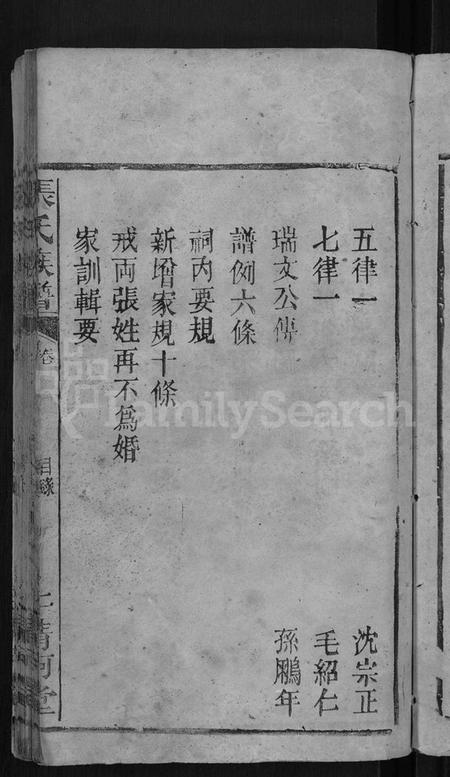 五律一 沈宗正
七律一 毛紹仁
瑞文公傳 孫鵬年
譜例六條
祠內要規
新增家規十條
戒両張姓再不爲婚
家訓輯要
張氏族譜 卷 目錄 清河堂
FamilySearch